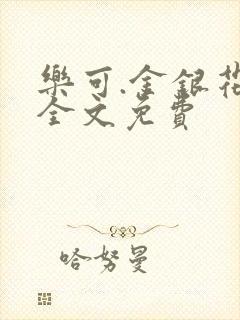 樂可.金銀花
全文免費
哈努曼